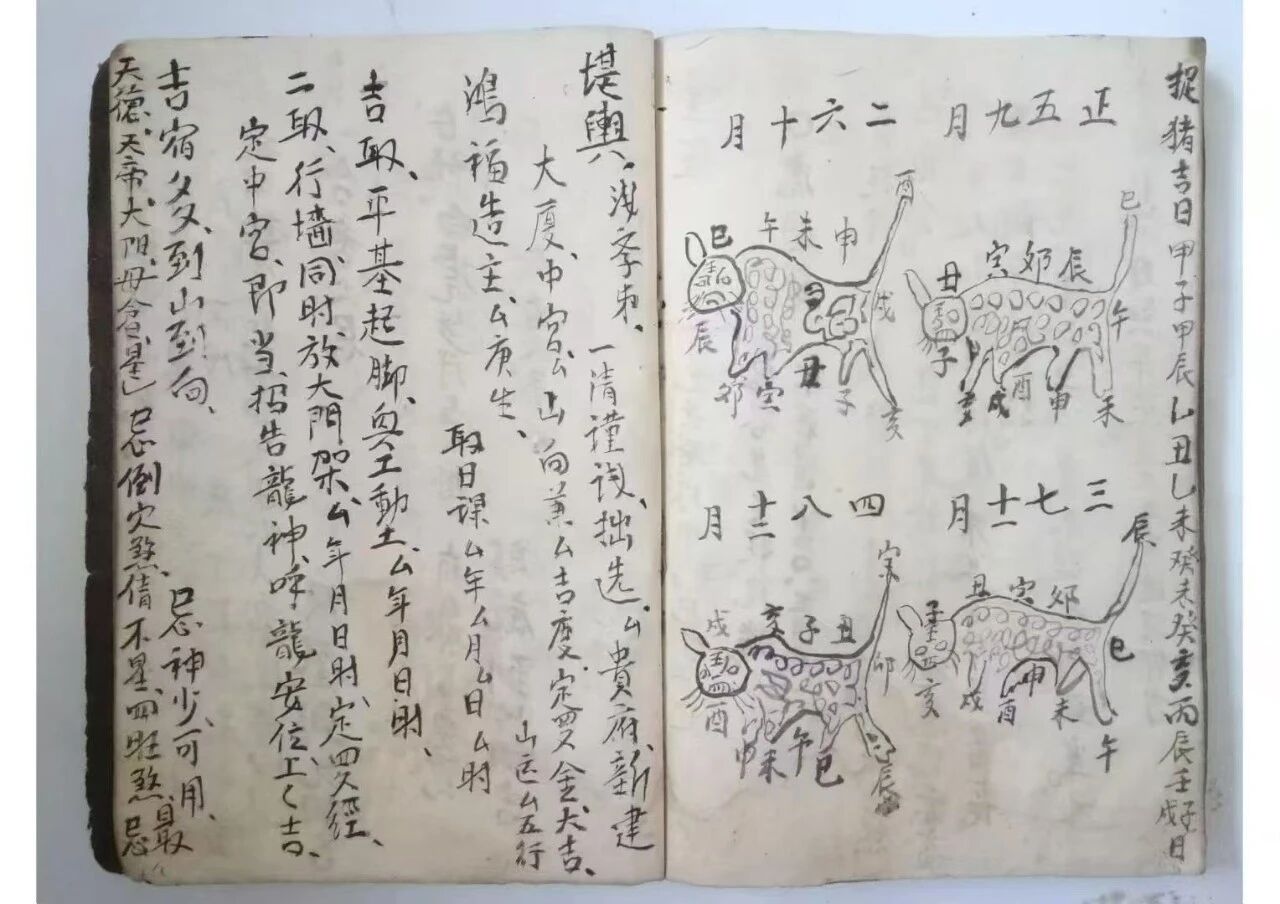 捉猪吉日甲子甲辰乚丑乚未癸未癸亥丙辰壬子戌日
正五九月
巳
丑寅卯辰
午
子
亥戌酉申未
二六十月
酉
巳午未申
戌
辰
卯寅丑子亥
三七十一月
辰
子丑寅卯
巳
亥
戌酉申未午
四八十二月
寅
戌亥子丑
卯
酉
申未午巳辰
堪輿
一清謹识、拙选、厶貴府新建
大厦、中宫厶山向兼厶吉度、定
金大吉、
山运厶五行
鴻福造主厶庚生、
取日課厶年厶月厶日厶时
吉取、平基起脚、興工動土、厶年月日时、
二取、行墙同时、放大門架厶年月日时、定
經、
定中宫、即当
告龍神、呼龍安位、上〱吉、
吉宿多、到山到向、
忌神少、可用、
天德、天帝、大阳、母倉
忌倒穴煞
四旺煞、最忌